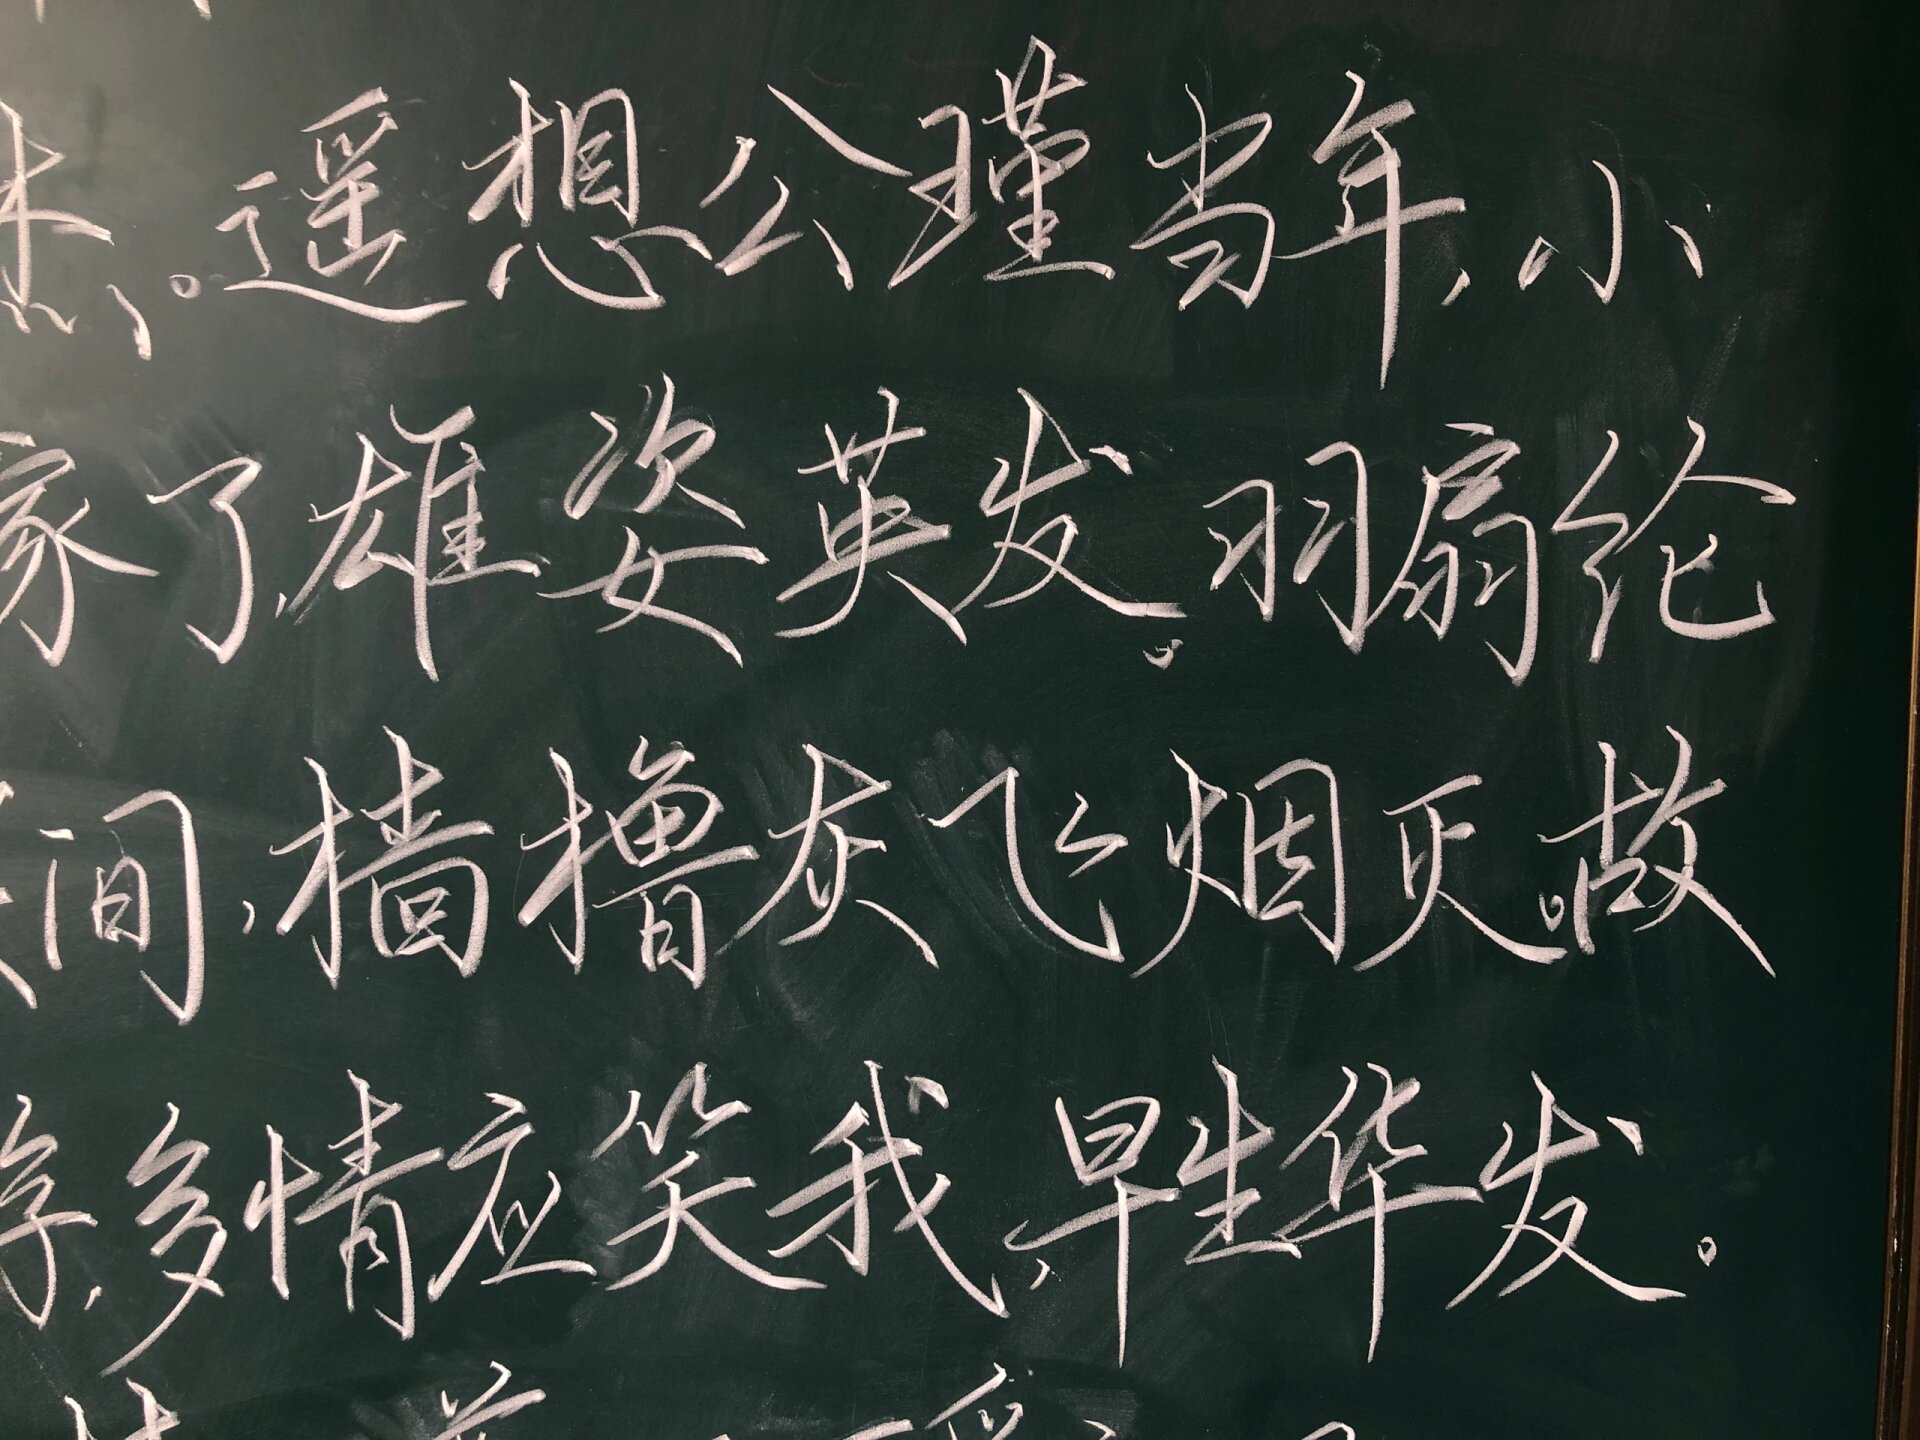 杰。遥想公瑾当年，小
家了，雄姿英发。羽扇纶
间，樯橹灰飞烟灭。故
多情应笑我，早生华发。